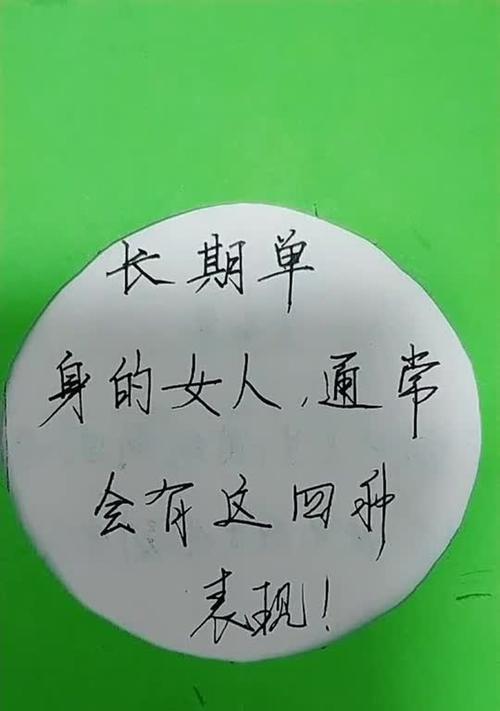 长期单
身的女人,通常
会有这四种
表现!